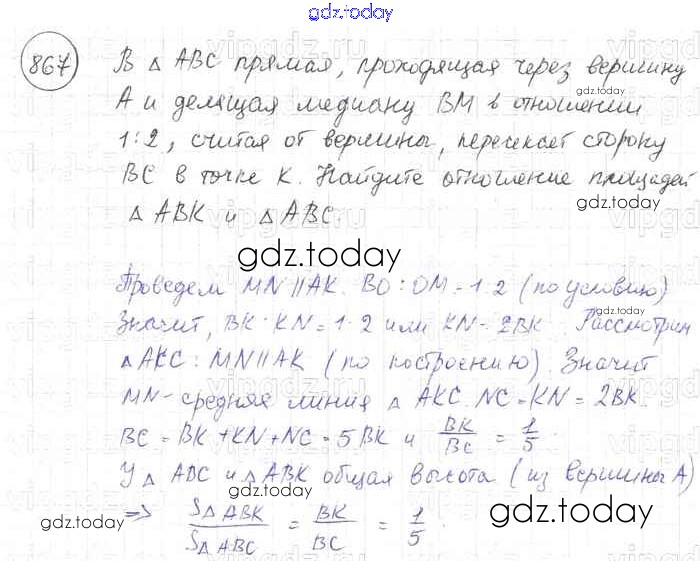 gdz.today
867 В △ ABC прямая, проходящая через вершину
A и делящая медиану BM в отношении
1:2, считая от вершины, пересекает сторону
BC в точке K. Найдите отношение площадей
△ ABK и △ ABC.
gdz.today
gdz.today
gdz.today
Проведем MN || AK. BO : OM = 1:2 (по условию)
Значит, BK : KN = 1:2 или KN = 2BK. Рассмотрим
△ AKC : MN || AK (по построению). Значит
MN - средняя линия △ AKC. NC = KN = 2BK.
BC = BK + KN + NC = 5BK и BK/BC = 1/5.
У △ ABC и △ ABK общая высота (из вершины A)
=> S△ABK/S△ABC = BK/BC = 1/5.
gdz.today
gdz.today